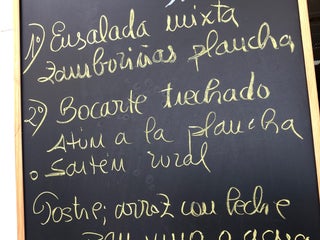 1º) Ensalada mixta
Zamboriñas plancha
2º) Bocarte trechado
Atún a la plancha
o Sartén rural
Postre; arroz con leche
Pan vino o agua